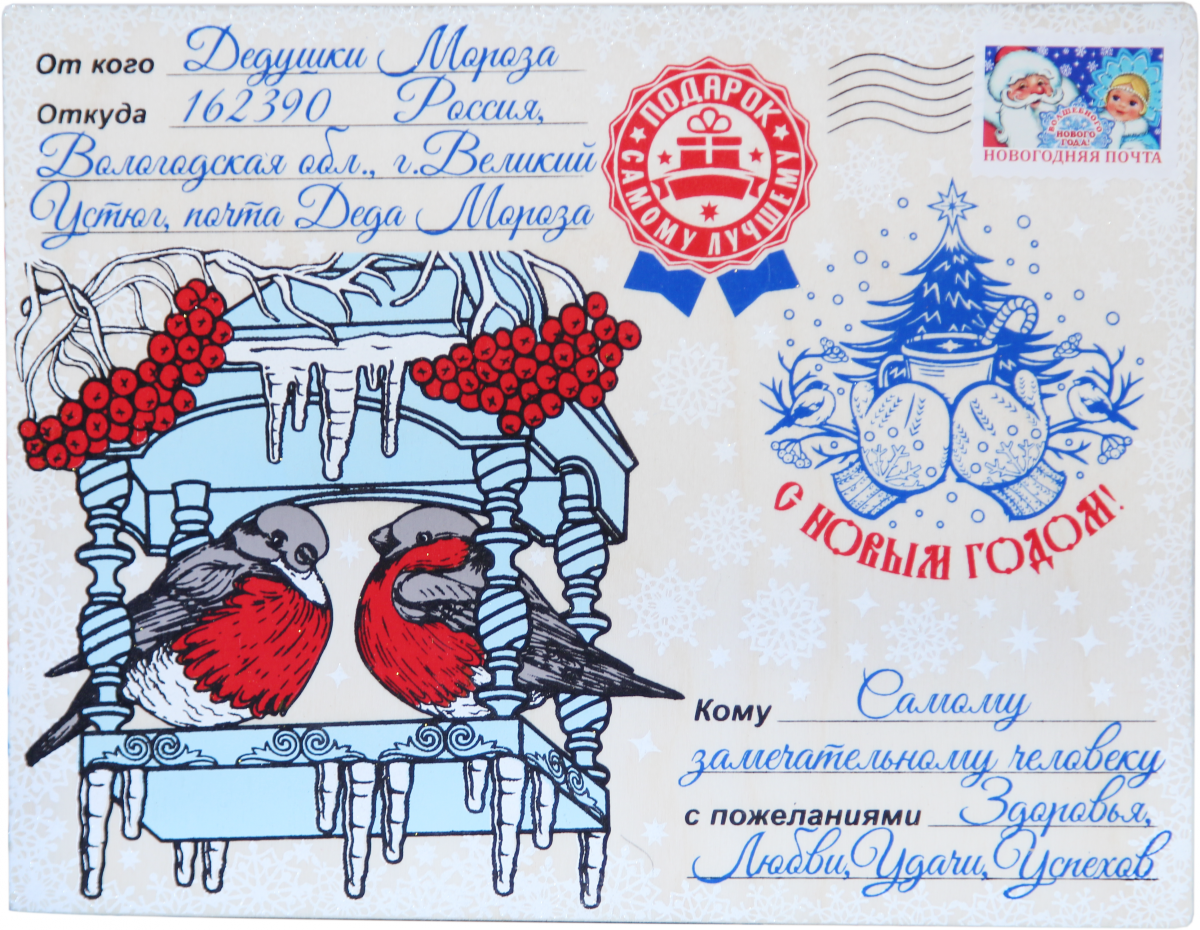 От кого Дедушки Мороза
Откуда 162390 Россия,
Вологодская обл., г.Великий
Устюг, почта Деда Мороза
ПОДАРОК
САМОМУ ЛУЧШЕМУ
ВОЛШЕБНОГО
НОВОГО
ГОДА!
НОВОГОДНЯЯ ПОЧТА
С НОВЫМ ГОДОМ!
Кому Самому
замечательному человеку
с пожеланиями Здоровья,
Любви, Удачи, Успехов